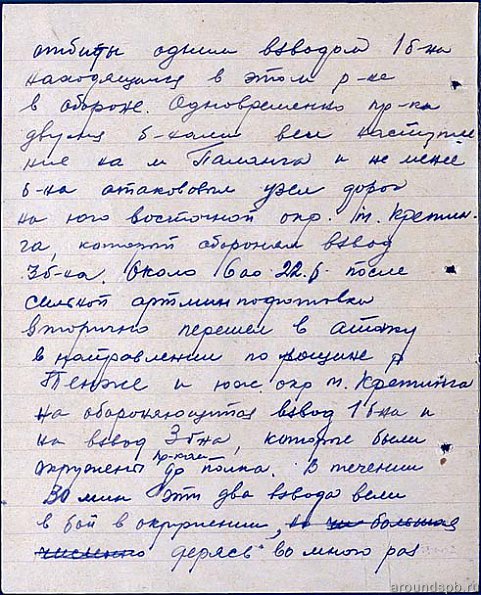 отбиты одним взводом 1 б-на
находящимся в этом р-не
в обороне. Одновременно пр-ник
двумя б-нами вел наступле
ние на м Паланга и не менее
б-на атаковал узел дорог
на юго восточной окр. м. Кретин-
га, который оборонял взвод
3 б-на. Около 6 00 22.6 после
сильной артминподготовки
вторично перешел в атаку
в направлении по рощине
и юж. окр м. Кретинга
на обороняющийся взвод 1 б-на и
на взвод 3 б-на, которые были
пр-ком
окружены полка. В течении
30 мин эти два взвода вели
бой в окружении, большая
дерясь во много раз
aroundspb.ru